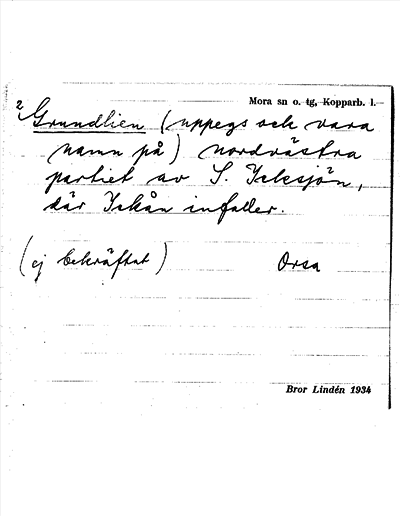 Mora sn o. tg, Kopparb. l.
2 Grundlien (uppegs och vara
namn på) nordvästra
partiet av S. Icksjön,
där Ickån infaller.
(ej bekräftat) Orsa
Bror Lindén 1934